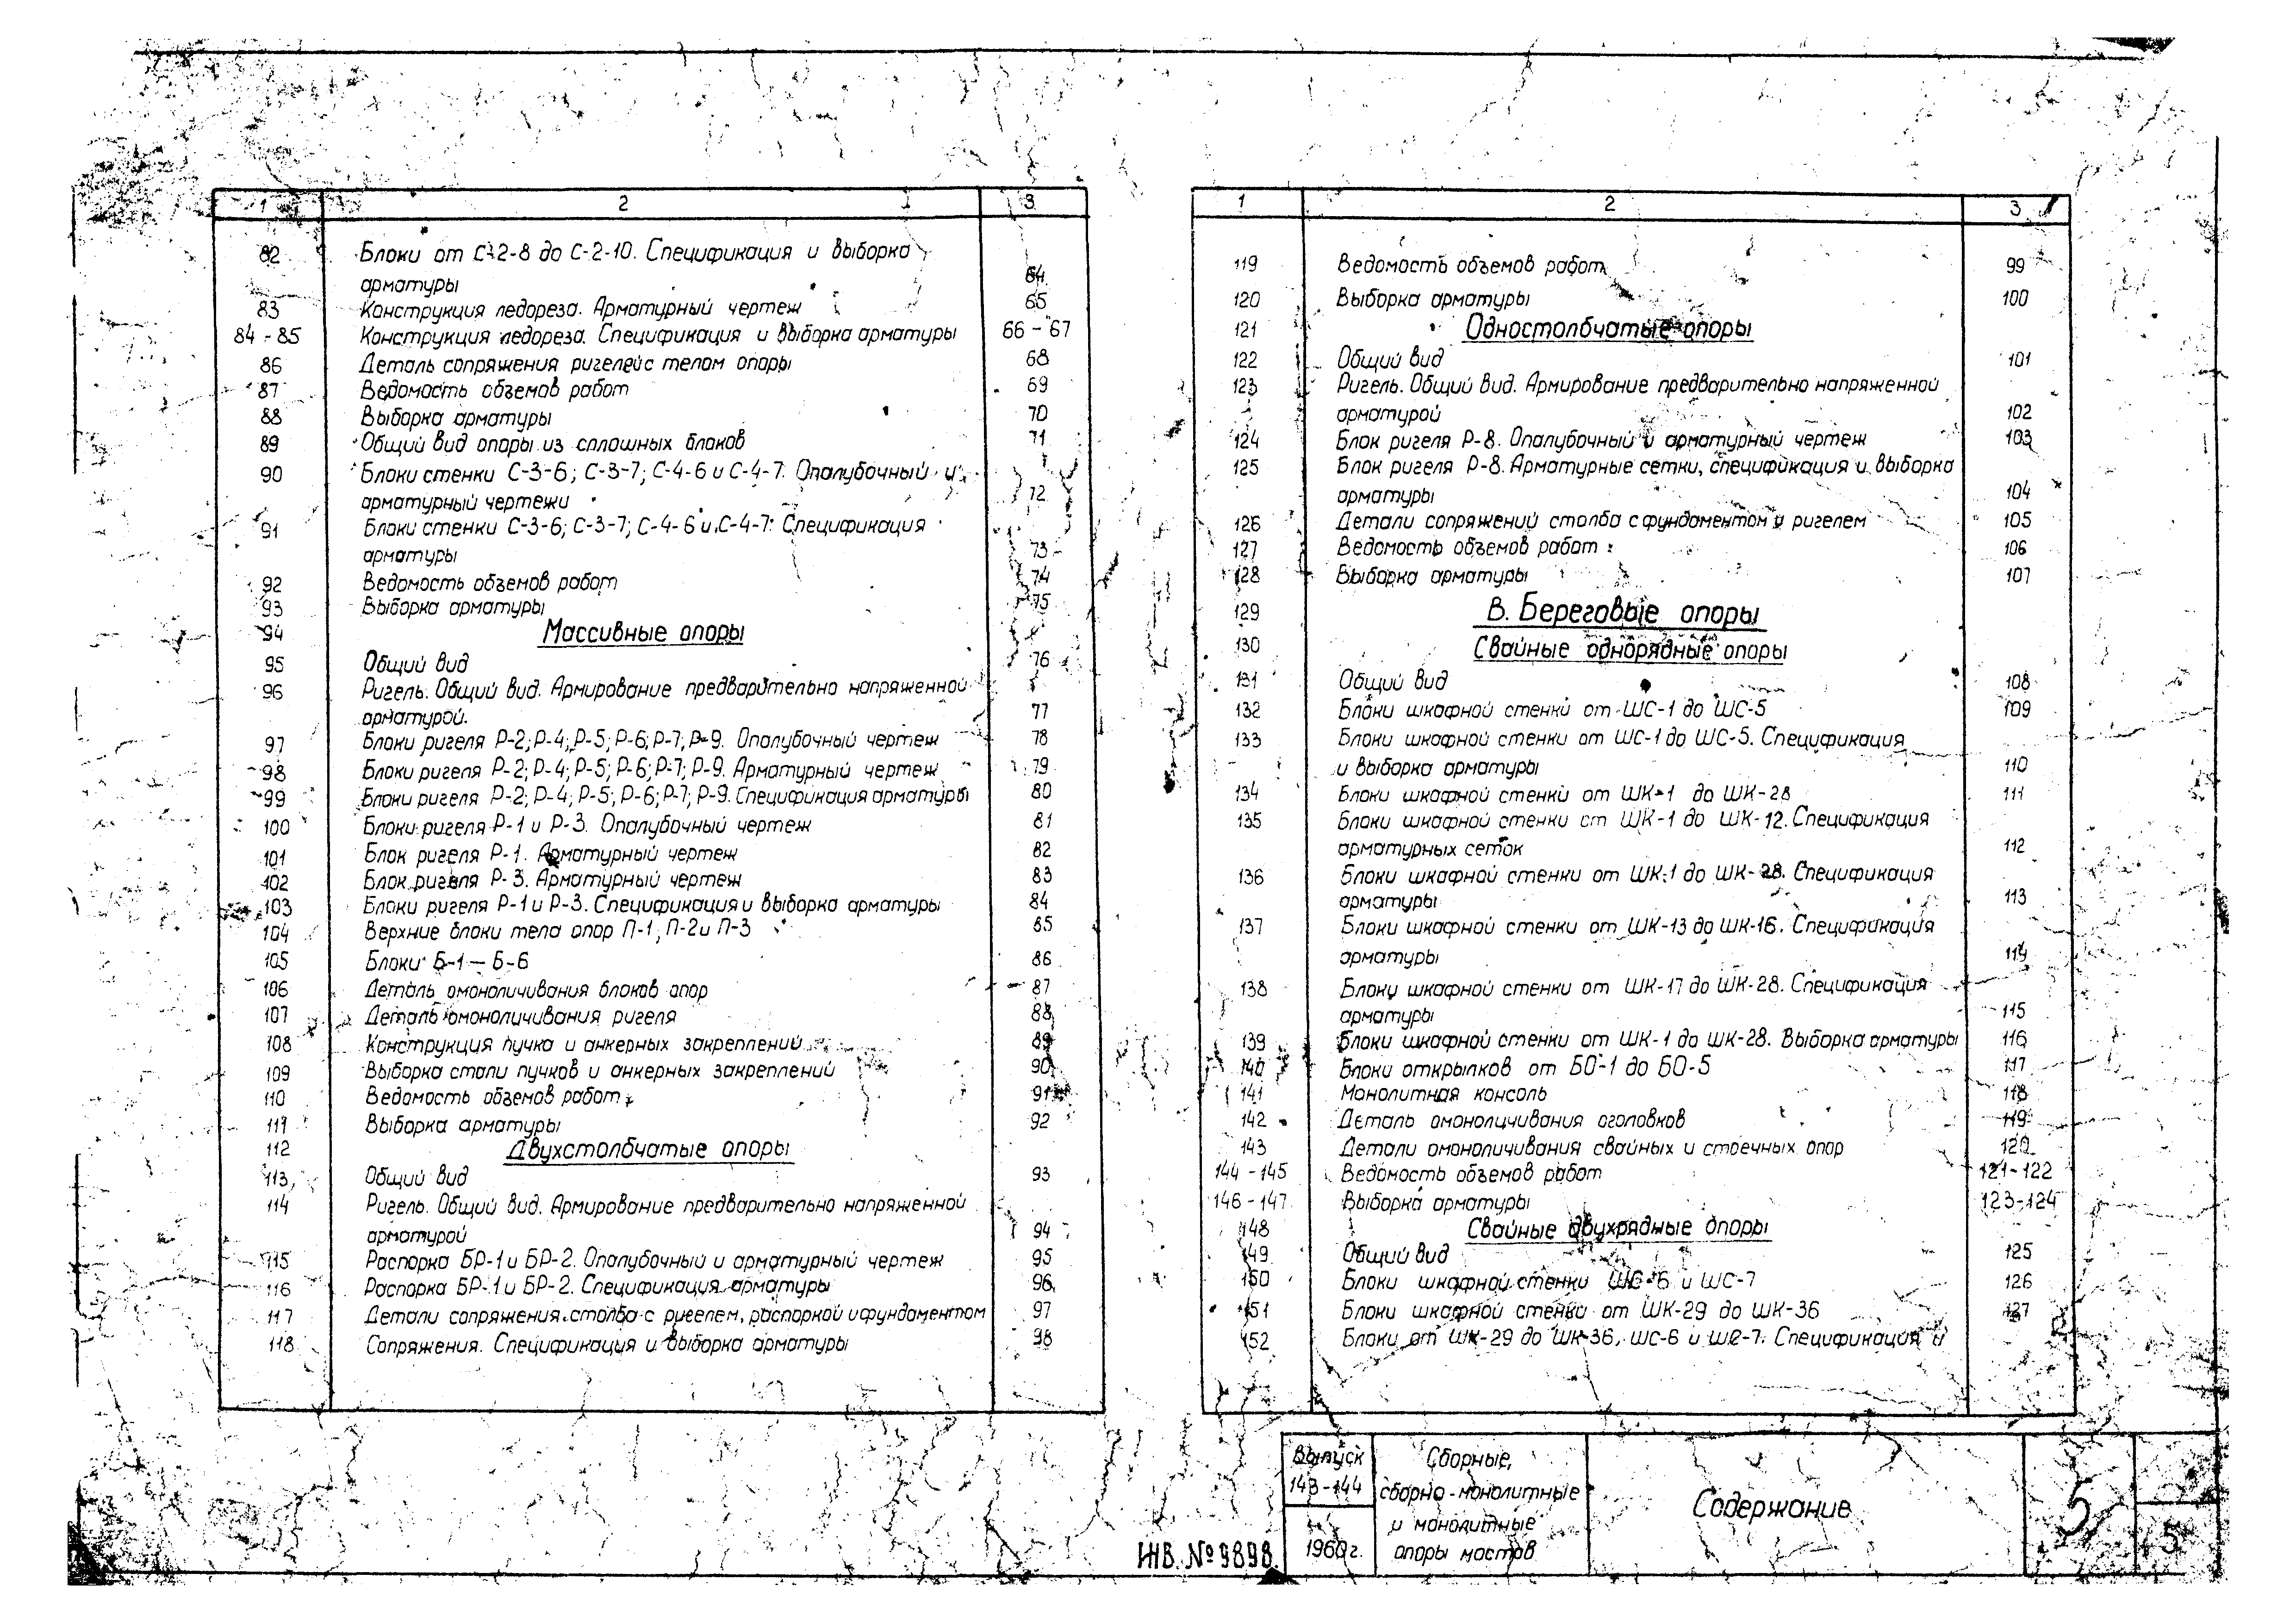 1 2 3
82 Блоки от С-2-8 до С-2-10. Спецификация и выборка
арматуры 64
83 Конструкция ледореза. Арматурный чертеж 65
84-85 Конструкция ледореза. Спецификация и выборка арматуры 66-67
86 Деталь сопряжения ригелей с телом опоры 68
87 Ведомость объемов работ 69
88 Выборка арматуры 70
89 Общий вид опоры из сплошных блоков 71
90 Блоки стенки С-3-6; С-3-7; С-4-6 и С-4-7. Опалубочный и
арматурный чертежи 72
91 Блоки стенки С-3-6; С-3-7; С-4-6 и С-4-7. Спецификация
арматуры 73
92 Ведомость объемов работ 74
93 Выборка арматуры 75
94 Массивные опоры
95 Общий вид 76
96 Ригель. Общий вид. Армирование предварительно напряженной
арматурой. 77
97 Блоки ригеля Р-2; Р-4; Р-5; Р-6; Р-7; Р-9. Опалубочный чертеж 78
98 Блоки ригеля Р-2; Р-4; Р-5; Р-6; Р-7; Р-9. Арматурный чертеж 79
99 Блоки ригеля Р-2; Р-4; Р-5; Р-6; Р-7; Р-9. Спецификация арматуры 80
100 Блоки ригеля Р-1 и Р-3. Опалубочный чертеж 81
101 Блок ригеля Р-1. Арматурный чертеж 82
102 Блок ригеля Р-3. Арматурный чертеж 83
103 Блоки ригеля Р-1 и Р-3. Спецификация и выборка арматуры 84
104 Верхние блоки тела опор П-1, П-2 и П-3 85
105 Блоки Б-1 — Б-6 86
106 Деталь омоноличивания блоков опор 87
107 Деталь омоноличивания ригеля 88
108 Конструкция пучка и анкерных закреплений 89
109 Выборка стали пучков и анкерных закреплений 90
110 Ведомость объемов работ 91
111 Выборка арматуры 92
112 Двухстолбчатые опоры
113 Общий вид 93
114 Ригель. Общий вид. Армирование предварительно напряженной
арматурой 94
115 Распорка БР-1 и БР-2. Опалубочный и арматурный чертеж 95
116 Распорка БР-1 и БР-2. Спецификация арматуры 96
117 Детали сопряжения столба с ригелем, распоркой и фундаментом 97
118 Сопряжения. Спецификация и выборка арматуры 98
1 2 3
119 Ведомость объемов работ 99
120 Выборка арматуры 100
121 Одностолбчатые опоры
122 Общий вид 101
123 Ригель. Общий вид. Армирование предварительно напряженной
арматурой 102
124 Блок ригеля Р-8. Опалубочный и арматурный чертеж 103
125 Блок ригеля Р-8. Арматурные сетки, спецификация и выборка
арматуры 104
126 Детали сопряжений столба с фундаментом и ригелем 105
127 Ведомость объемов работ 106
128 Выборка арматуры 107
129 В. Береговые опоры
130 Свайные однорядные опоры
131 Общий вид 108
132 Блоки шкафной стенки от ШС-1 до ШС-5 109
133 Блоки шкафной стенки от ШС-1 до ШС-5. Спецификация
и выборка арматуры 110
134 Блоки шкафной стенки от ШК-1 до ШК-28 111
135 Блоки шкафной стенки от ШК-1 до ШК-12. Спецификация
арматурных сеток 112
136 Блоки шкафной стенки от ШК-1 до ШК-28. Спецификация
арматуры 113
137 Блоки шкафной стенки от ШК-13 до ШК-16. Спецификация
арматуры 114
138 Блоки шкафной стенки от ШК-17 до ШК-28. Спецификация
арматуры 115
139 Блоки шкафной стенки от ШК-1 до ШК-28. Выборка арматуры 116
140 Блоки открылков от БО-1 до БО-5 117
141 Монолитная консоль 118
142 Деталь омоноличивания оголовков 119
143 Детали омоноличивания свайных и стоечных опор 120
144-145 Ведомость объемов работ 121-122
146-147 Выборка арматуры 123-124
148 Свайные двухрядные опоры
149 Общий вид 125
150 Блоки шкафной стенки ШС-6 и ШС-7 126
151 Блоки шкафной стенки от ШК-29 до ШК-36 127
152 Блоки от ШК-29 до ШК-36, ШС-6 и ШС-7. Спецификация и
Выпуск 143-144
1960г.
Сборные,
сборно-монолитные
и монолитные
опоры мостов
Содержание
5
5
ИНВ. № 9898